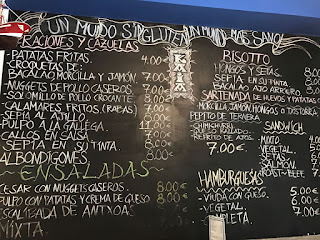 UN MUNDO SIN GLUTEN UN MUNDO MAS SANO!
RACIONES Y CAZUELAS
PATATAS FRITAS. 4.00€
CROQUETAS
BACALAO, MORCILLA Y JAMÓN. 7.00€
NUGGETS DE POLLO CASEROS
SOLOMILLO DE POLLO CROCANTE
CALAMARES FRITOS (RABAS)
SEPIA AL AJILLO
PULPO A LA GALLEGA
POLLOS EN SALSA
SEPIA EN SU TINTA.
ALBONDIGONES
ENSALADAS
CESAR CON NUGGETS CASEROS. 8.00€
PULPO CON PATATAS Y CREMA DE QUESO 8.00€
ESCALIBADA DE ANTXOAS 8.00€
MIXTA
RISOTTO
HONGOS Y SETAS. 8.00€
SEPIA EN SU TINTA 8.00€
AJO ARRIERO 8.00€
SARTENADA DE HUEVOS Y PATATAS C
MORCILLA, JAMÓN, HONGOS O TXISTORRA
PEPITO DE TERNERA
REFRITO DE AJOS
7.00€.
SANDWICH
MIXTO
VEGETAL.
SETAS
SALMÓN.
ROAST-BEEF
HAMBURGUESAS
VIUDA CON QUESO 5.00€
VEGETAL. 6.00€
COMPLETA